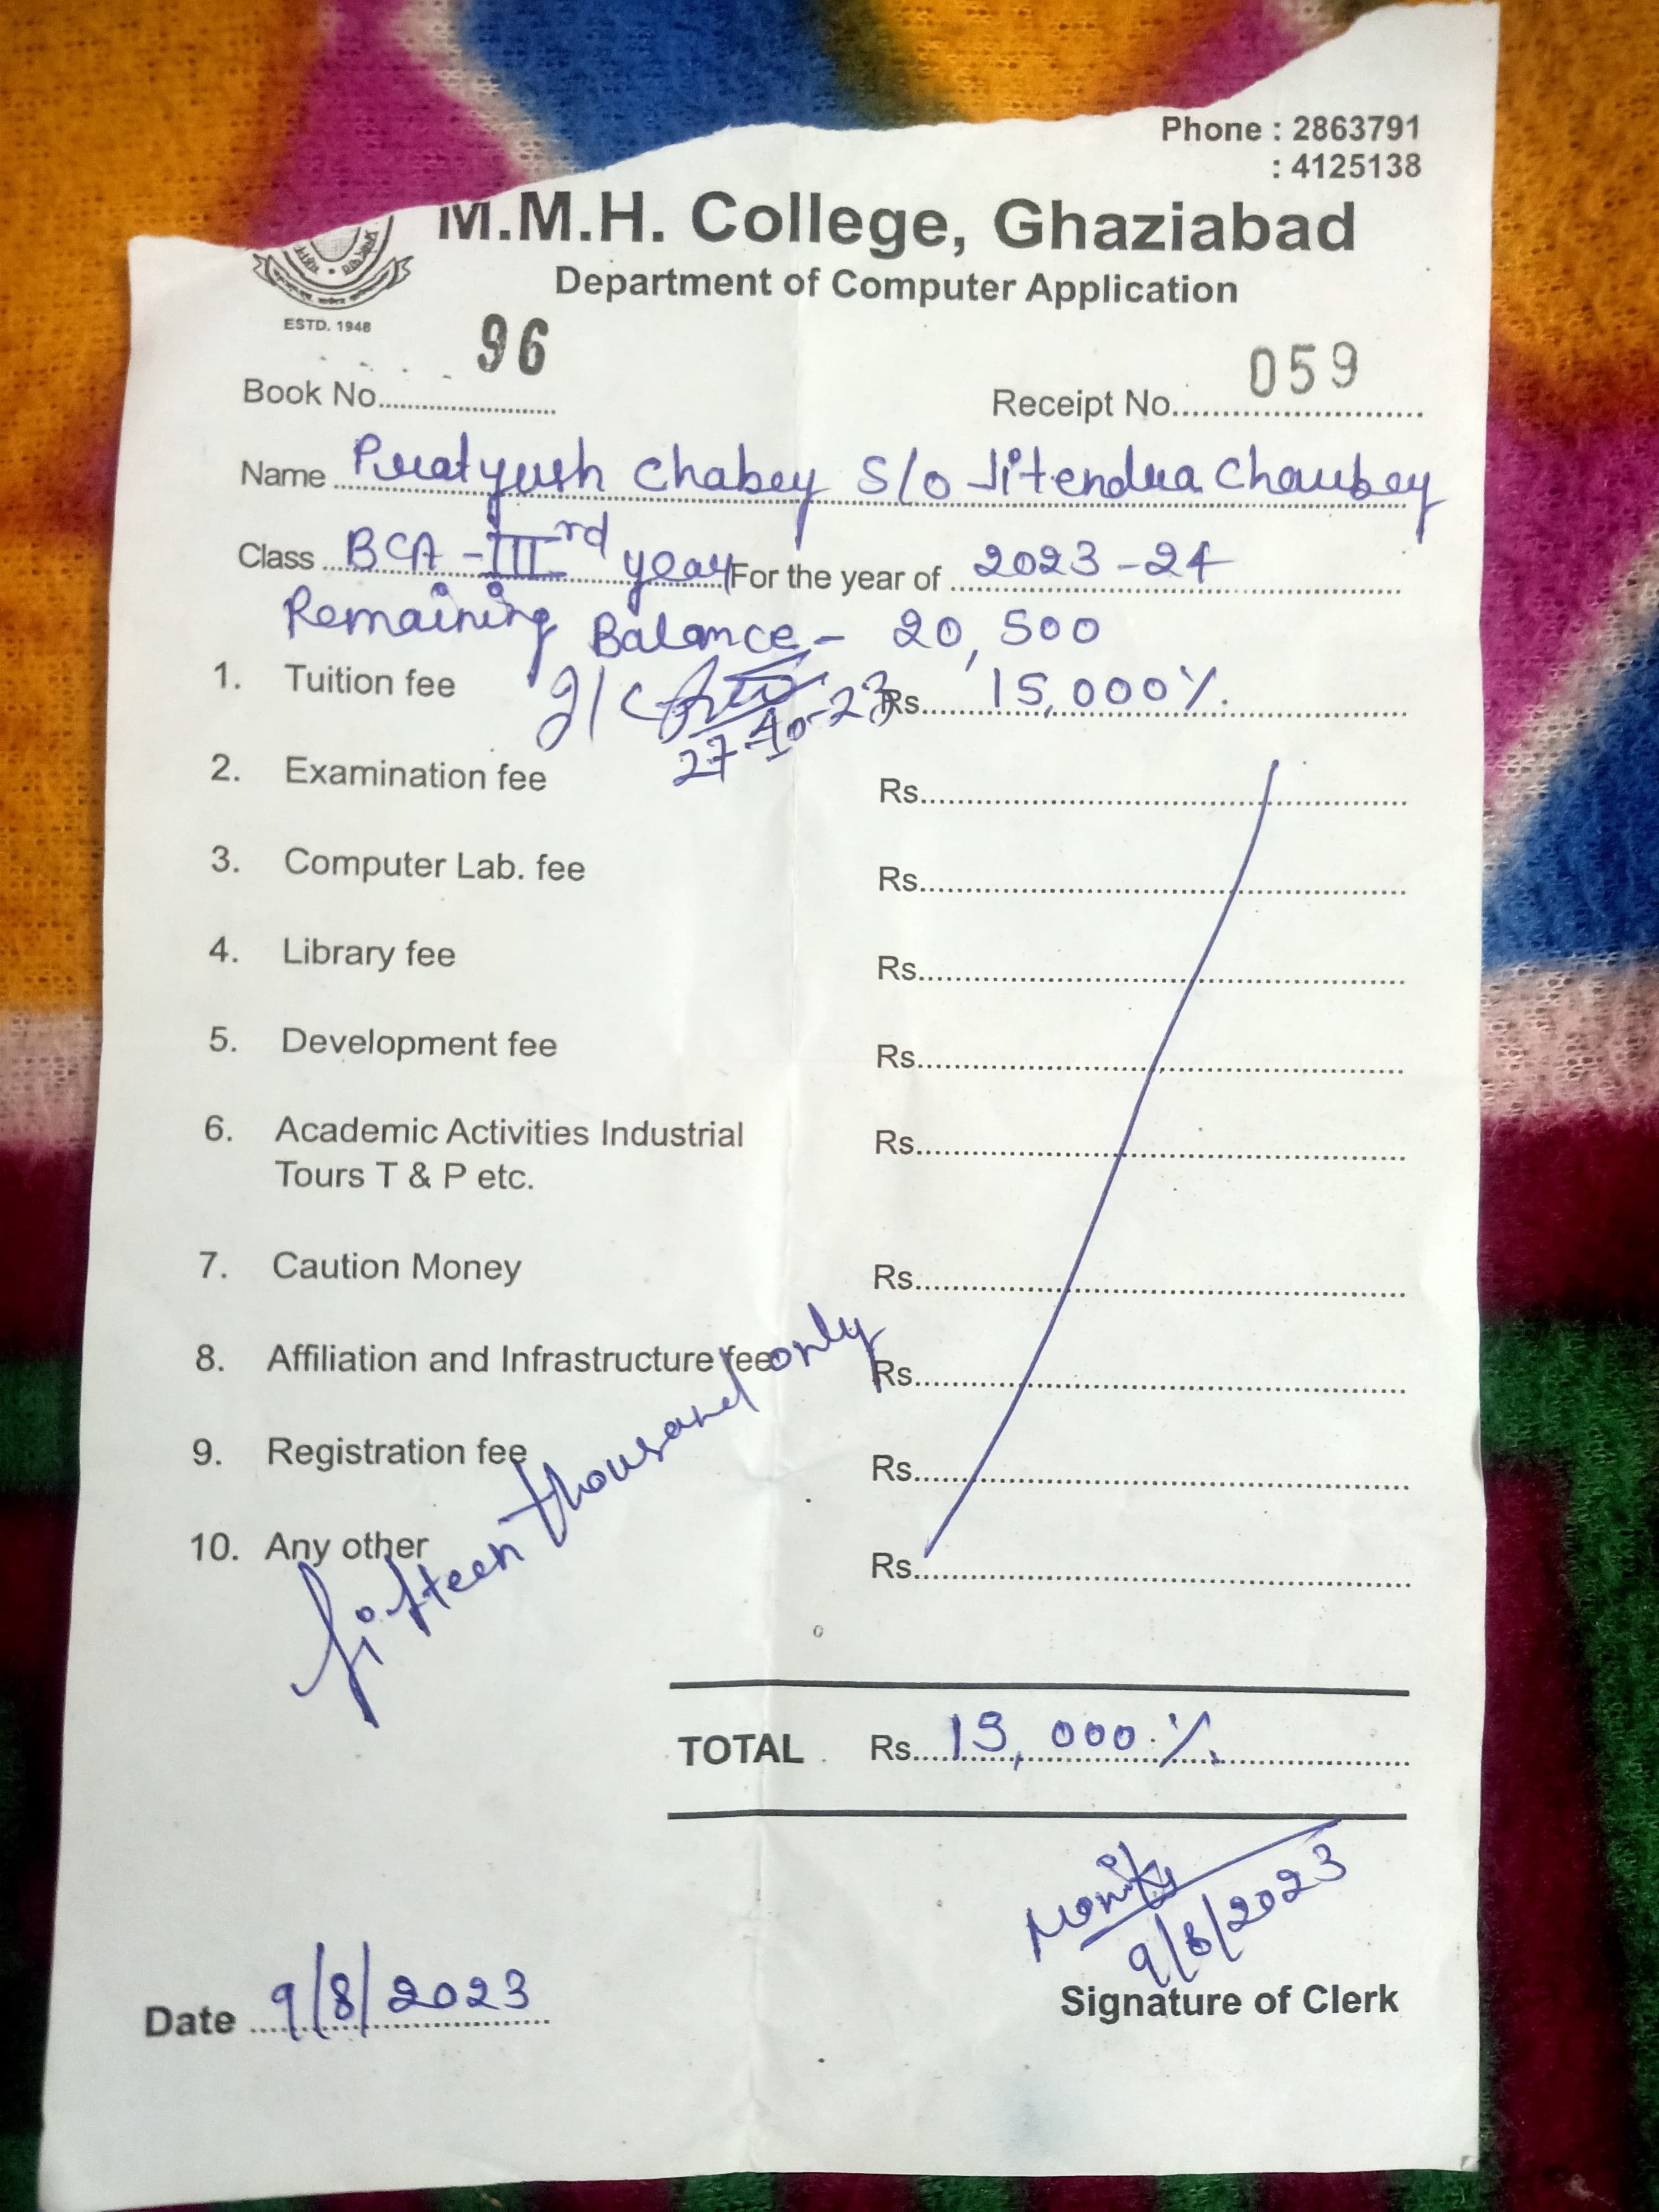 Phone : 2863791
: 4125138
M.M.H. College, Ghaziabad
Department of Computer Application
ESTD. 1948
Book No. 96
Receipt No. 059
Name Pratyush Chabey S/o Jitendra Chaubey
Class BCA - IIIrd year For the year of 2023-24
Remaining Balance - 20,500
1. Tuition fee Rs. 15,000/.
27-10-23
2. Examination fee Rs.
3. Computer Lab. fee Rs.
4. Library fee Rs.
5. Development fee Rs.
6. Academic Activities Industrial Rs.
Tours T & P etc.
7. Caution Money Rs.
8. Affiliation and Infrastructure fee Rs.
9. Registration fee Rs.
10. Any other Rs.
fifteen thousand only
TOTAL Rs. 15,000/.
9/8/2023
Signature of Clerk
Date 9/8/2023